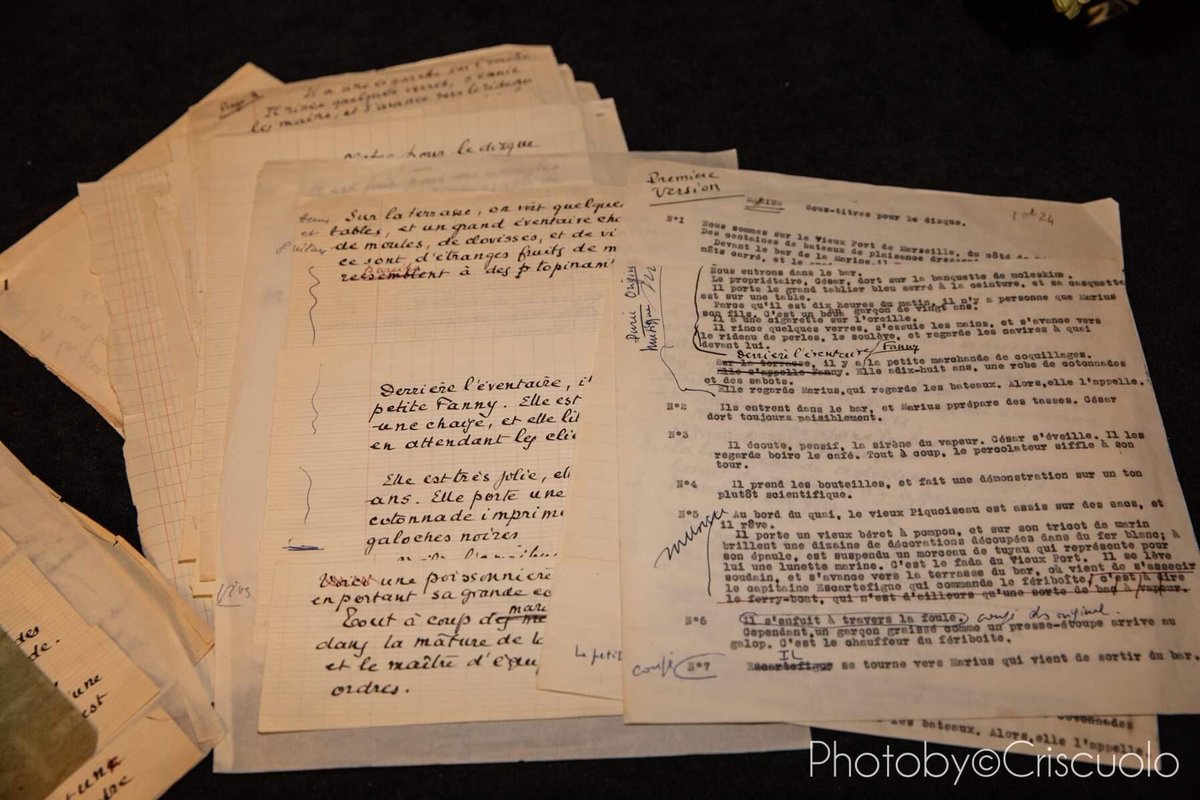 Page 3
Il a une cigarette sur l'oreille.
Il rince quelques verres, s'essuie
les mains, et s'avance vers le rideau
pour le disque
Sur la terrasse, on voit quelques
tables, et un grand éventaire
de moules, de clovisses, et de
ce sont d'étranges fruits de
ressemblent à des
Derrière l'éventaire,
petite Fanny. Elle est
une chaise, et elle lit
en attendant les
Elle est très jolie,
ans. Elle porte une
cotonnade
galoches noires
Voici une poissonnière
emportant sa grande
Tout à coup
dans la mâture de
et le maître
ordres.
La petit
PREMIÈRE
VERSION
MARIUS Sous-titres pour le disque.
N°1 Nous sommes sur le Vieux Port de Marseille, du côté de
Des centaines de bateaux de plaisance dressent
Devant le bar de la Marine, il
mâts carré, et
Nous entrons dans le bar.
Le propriétaire, César, dort sur la banquette de moleskine.
Il porte le grand tablier bleu serré à la ceinture, et sa casquette
est sur une table.
Parce qu'il est dix heures du matin, il n'y a personne que Marius
son fils. C'est un beau garçon de vingt ans.
Il a une cigarette sur l'oreille.
Il rince quelques verres, s'essuie les mains, et s'avance vers
le rideau de perles, le soulève, et regarde les navires à quai
devant lui.
Derrière l'éventaire / Fanny
Sur la terrasse, il y a la petite marchande de coquillages.
Elle s'appelle Fanny. Elle adix-huit ans, une robe de cotonnades
et des sabots.
Elle regarde Marius,qui regarde les bateaux. Alors,elle l'appelle.
N°2 Ils entrent dans le bar, et Marius pprépare des tasses. César
dort toujours paisiblement.
N°3
Il écoute, pensif, la sirène du vapeur. César s'éveille. Il les
regarde boire le café. Tout à coup, le percolateur siffle à son
tour.
N°4 Il prend les bouteilles, et fait une démonstration sur un ton
plutôt scientifique.
N°5 Au bord du quai, le vieux Piquoiseau est assis sur des sacs, et
il rêve.
musique
Il porte un vieux béret à pompon, et sur son tricot de marin
brillent une dizaine de décorations découpées dans du fer blanc; à
son épaule, est suspendu un morceau de tuyau qui représente pour
lui une lunette marine. C'est le fada du Vieux Port. Il se lève
soudain, et s'avance vers la terrasse du bar, où vient de s'asseoir
le capitaine Escartefigue qui commande le fériboîte, c'est à dire
le ferry-boat, qui n'est d'ailleurs qu'une sorte de bac à vapeur.
N°6 Il s'enfuit à travers la foule. coupé ds original.
Cependant,un garçon graissé comme un presse-étoupe arrive au
galop. C'est le chauffeur du fériboîte.
IL
coupé N°7 Escartefigue se tourne vers Marius qui vient de sortir du bar.
les bateaux. Alors,elle l'appelle
Photoby©Criscuolo